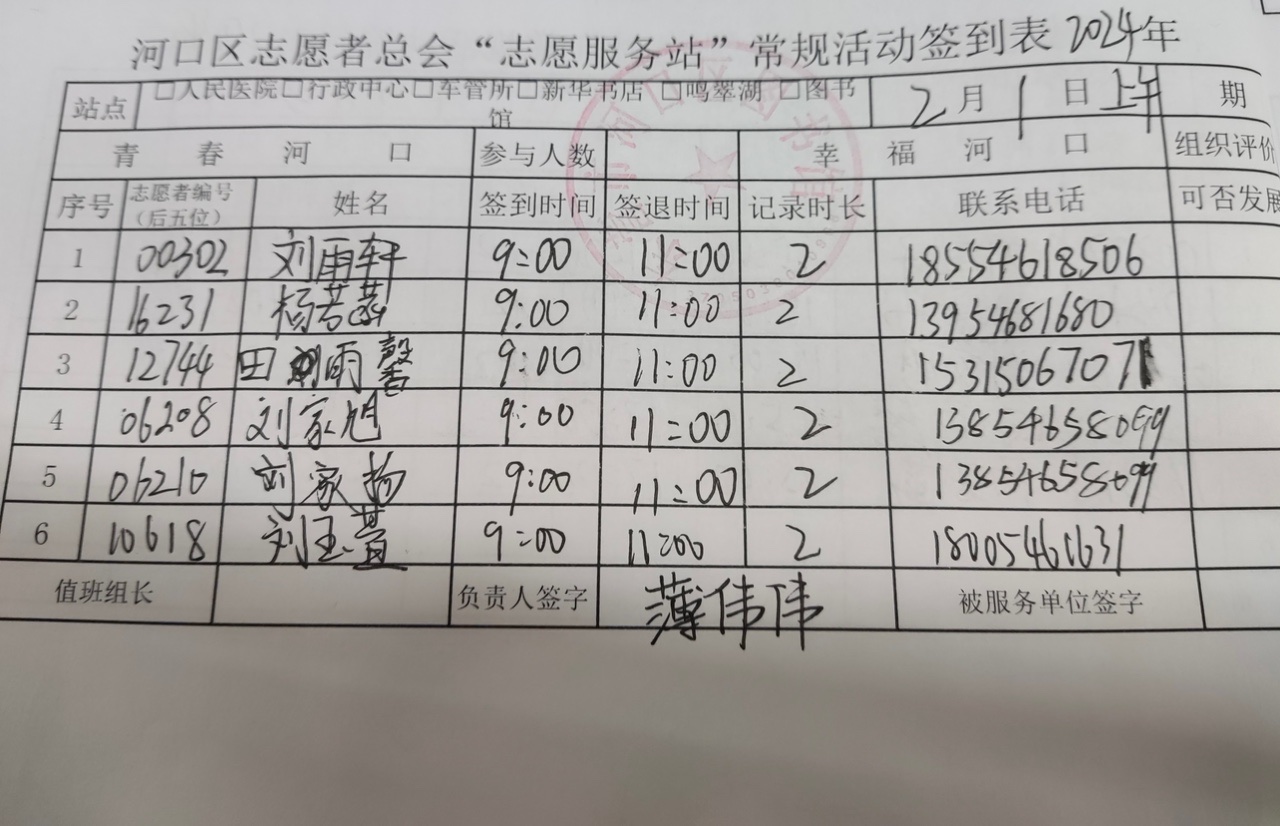 河口区志愿者总会“志愿服务站”常规活动签到表 2024年
站点 □人民医院□行政中心□车管所□新华书店 □鸣翠湖 □图书馆 2月1日上午 期
青春河口 参与人数 幸福河口 组织评价
序号 志愿者编号（后五位） 姓名 签到时间 签退时间 记录时长 联系电话 可否发展
1 00302 刘雨轩 9:00 11:00 2 18554618506
2 16231 杨芸菡 9:00 11:00 2 13954681680
3 12744 田雨馨 9:00 11:00 2 15315067071
4 06208 刘家旭 9:00 11:00 2 13854658099
5 06210 刘家扬 9:00 11:00 2 13854658099
6 10618 刘玉萱 9:00 11:00 2 18005461631
值班组长 负责人签字 薄伟伟 被服务单位签字